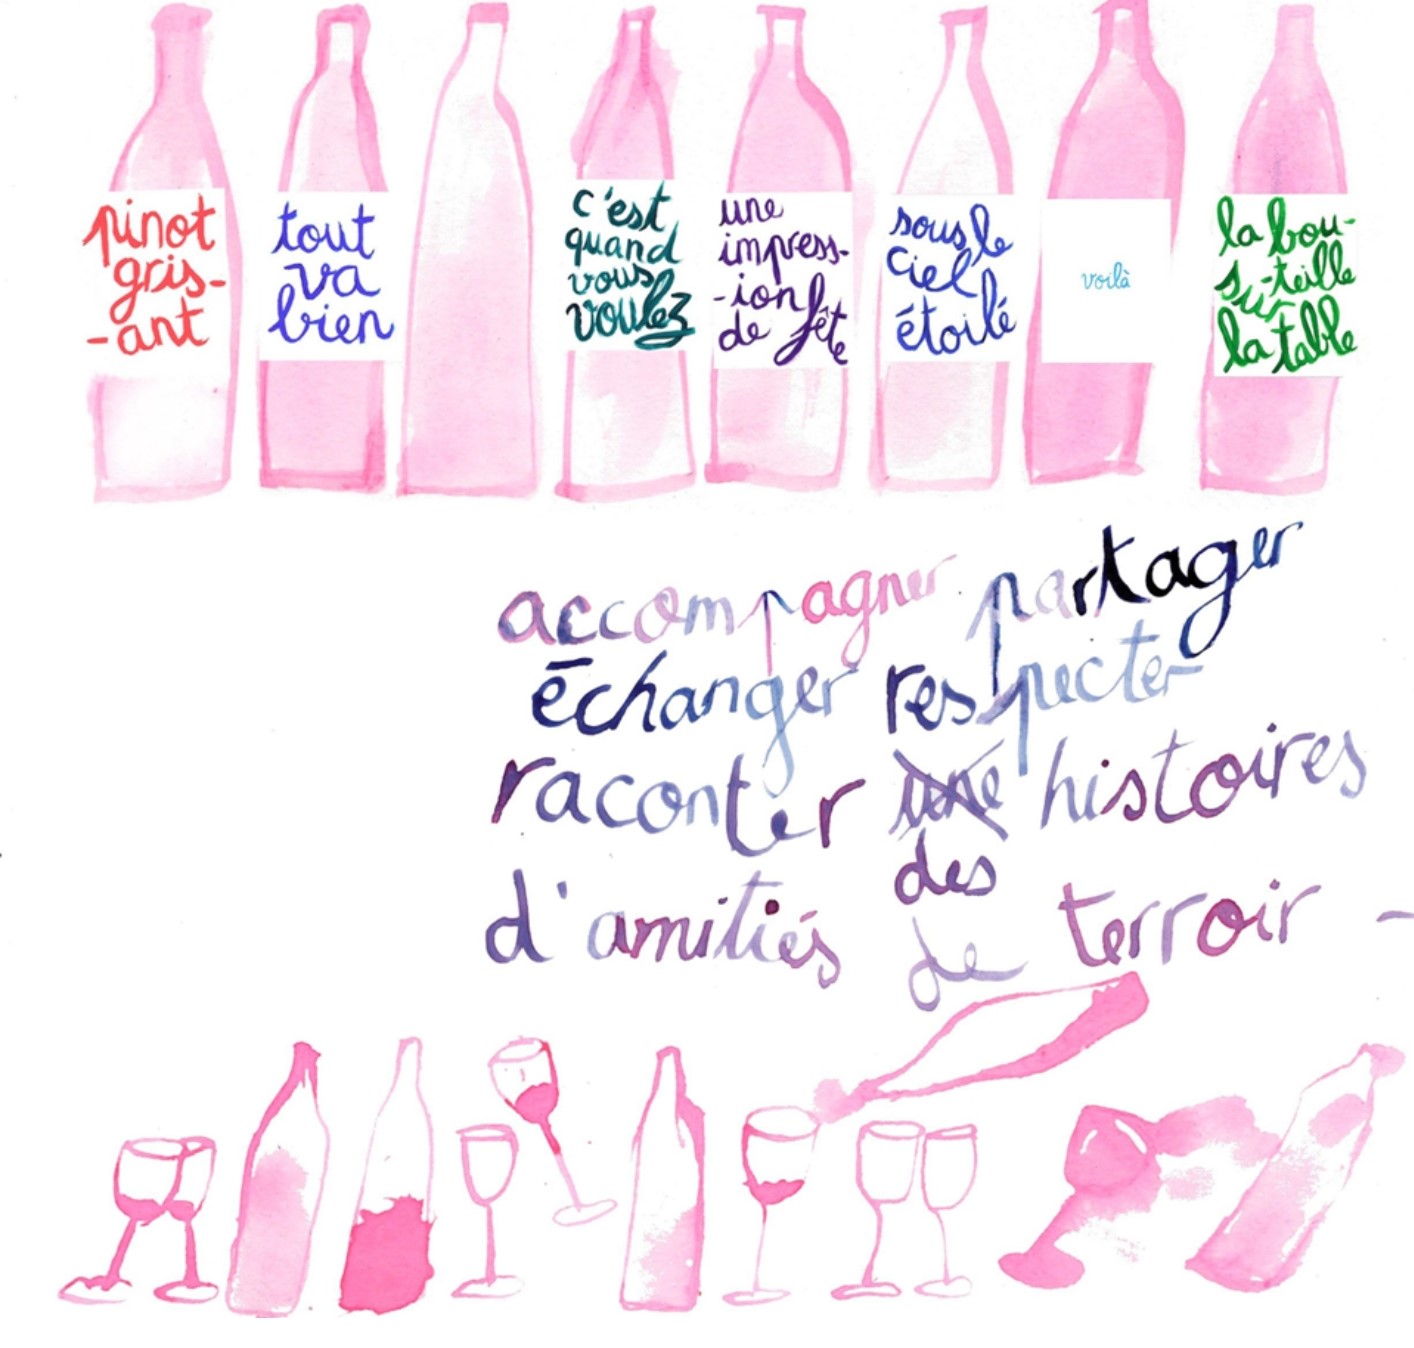 pinot
gris-
-ant
tout
va
bien
c'est
quand
vous
voulez
une
impress-
-ion
de fête
sous le
ciel
étoilé
voilà
la bou-
-teille
sur
la table
accompagner partager
échanger respecter
raconter une histoires
des
d'amitiés de terroir -